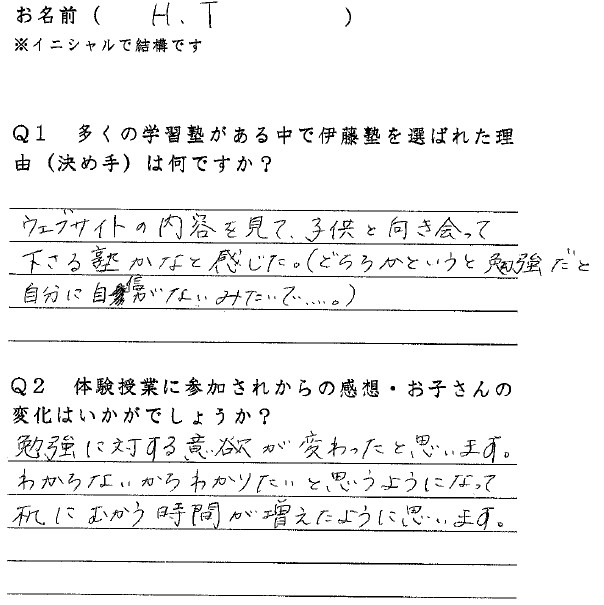 お名前（ H、T ）
※イニシャルで結構です
Q1 多くの学習塾がある中で伊藤塾を選ばれた理
由（決め手）は何ですか？
ウェブサイトの内容を見て、子供と向き会って
下さる塾かなと感じた。（どちらかというと勉強だと
自分に自信がないみたいで……。）
Q2 体験授業に参加されからの感想・お子さんの
変化はいかがでしょうか？
勉強に対する意欲が変わったと思います。
わからないからわかりたいと思うようになって
机にむかう時間が増えたように思います。